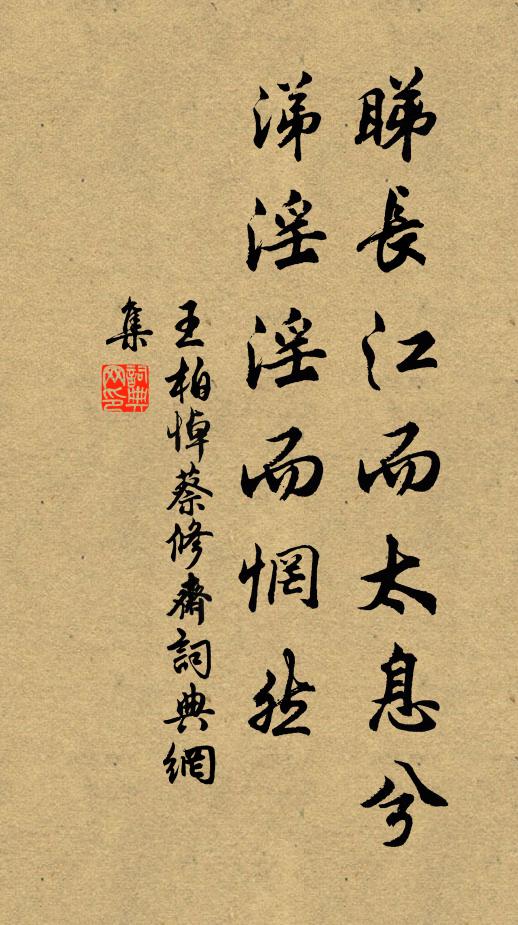 睇長江而太息兮
涕淫淫而惘然
王柏悼蔡修齋詞典網
集
詞典
網印